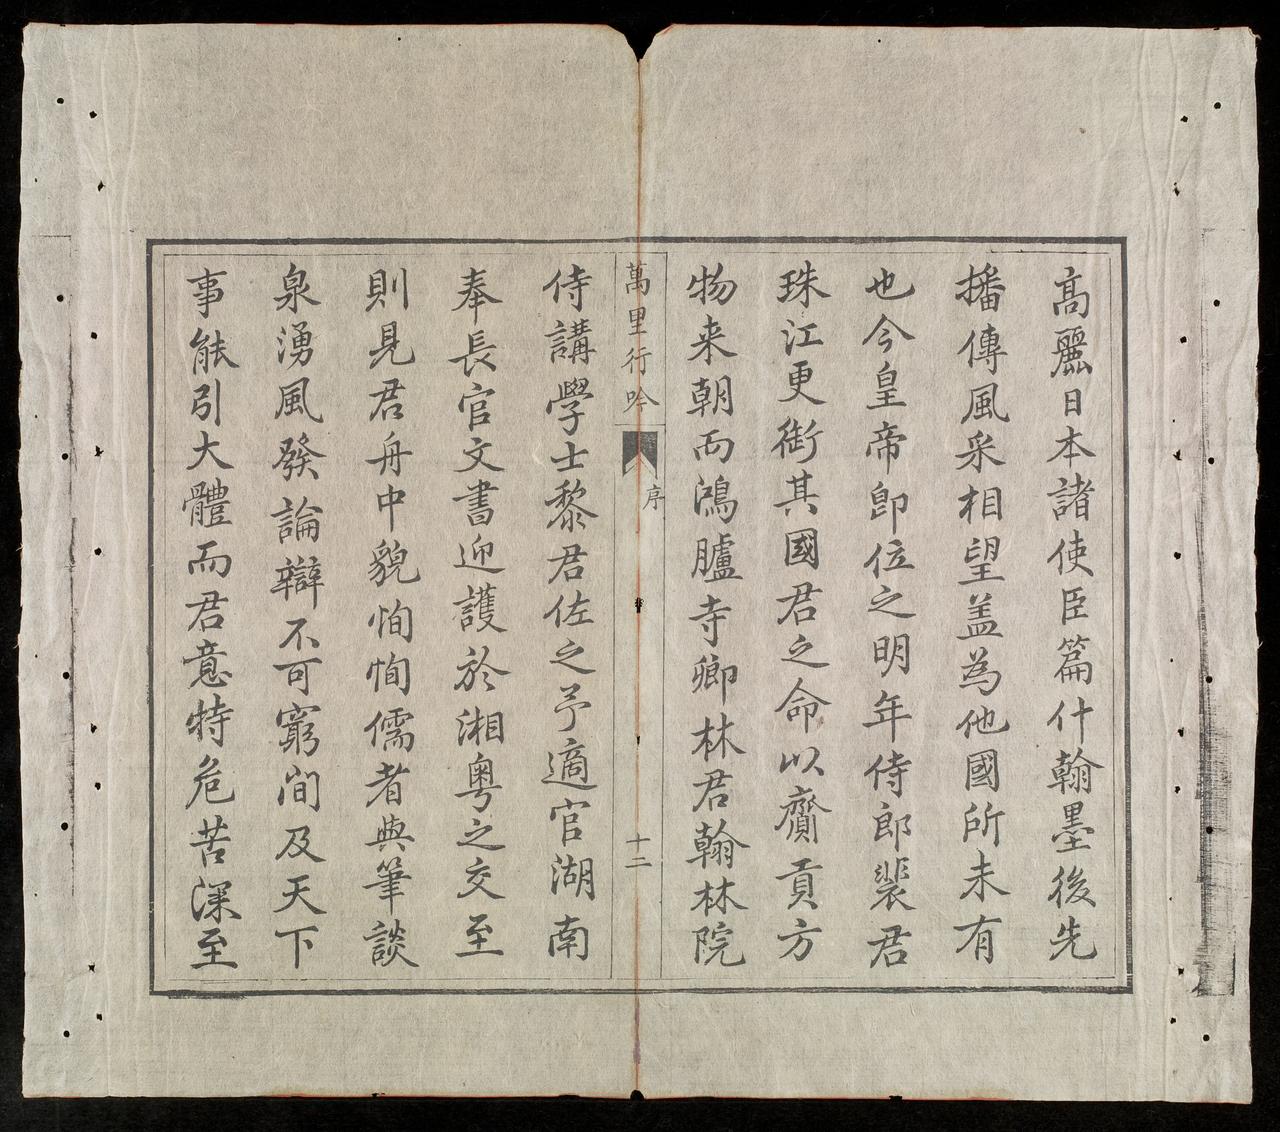 高麗日本諸使臣篇什翰墨後先
播傳風采相望盖為他國所未有
也今皇帝卽位之明年侍郎裴君
珠江更衘其國君之命以齎貢方
物来朝而鴻臚寺卿林君翰林院
萬里行吟
序
十二
侍講學士黎君佐之予適官湖南
奉長官文書迎護於湘粤之交至
則見君舟中貌恂恂儒者與筆談
泉湧風發論辯不可窮间及天下
事能引大體而君意特危苦深至